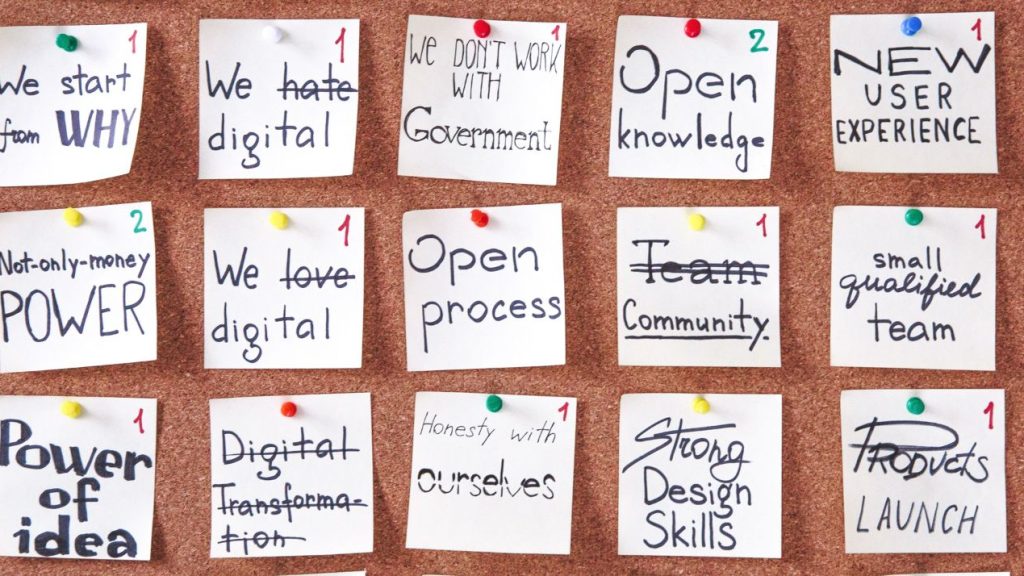 1
We start
from WHY
1
We hate
digital
1
We DON'T WORK
WITH
Government
2
Open
knowledge
1
NEW
USER
EXPERIENCE
2
Not-only-money
POWER
1
We love
digital
Open
process
1
Team
Community.
1
small
qualified
team
1
Power
of
idea
Digital
Transforma-
tion
1
Honesty with
ourselves
Strong
Design
Skills
1
Products
LAUNCH